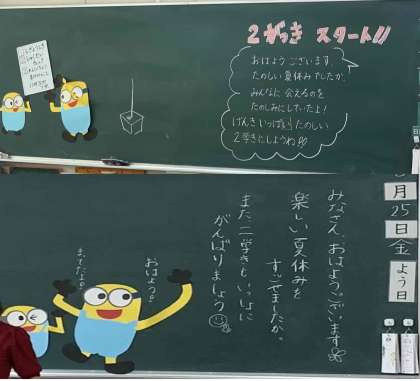 2がっき スタート!!
おはようございます。
たのしい夏休みでしたか。
みんなに会えるのを
たのしみにしていたよ!
げんきいっぱいたのしい
2学きにしようね
みなさん、おはようございます
楽しい夏休みを
すごせましたか。
また二学きもいっしょに
がんばりましょう
おはよう。
まってたよ。
月
25
日
金
よう日